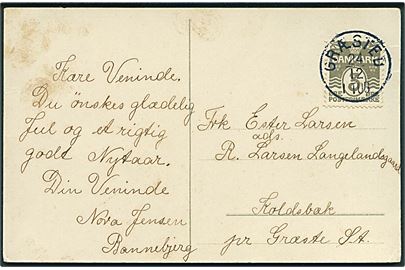 Kære Veninde.
Du ønskes glædelig
Jul og et rigtig
godt Nytaar.
Din Veninde
Nova Jensen
Bannebjerg
GRÆSTED
24
12
DANMARK
Frk Ester Larsen
ads.
R. Larsen Langelandsgaard
Holdsbæk
pr Græste St.